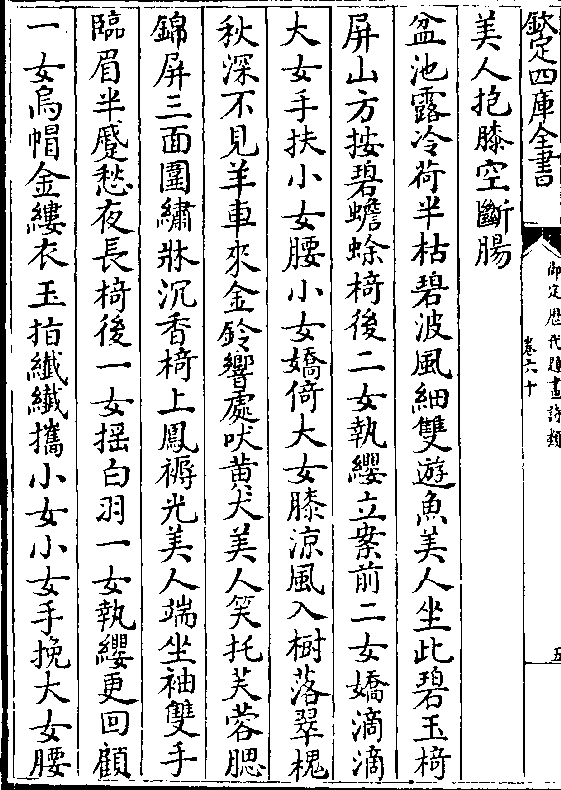 欽定四庫全書
御定歷代題畫詩類
卷六十
五
美人抱膝空斷腸
盆池露冷荷半枯碧波風細雙遊魚美人坐此碧玉椅
屏山方按碧蟾蜍椅後二女執纓立案前二女嬌滴滴
大女手扶小女腰小女嬌倚大女膝凉風入樹落翠槐
秋深不見羊車來金鈴響處吠黄犬美人笑托芙蓉腮
錦屏三面圍繡牀沉香椅上鳳褥光美人端坐袖雙手
臨眉半蹙愁夜長椅後一女揺白羽一女執纓更回顧
一女烏帽金縷衣玉指纖纖攜小女小女手挽大女腰